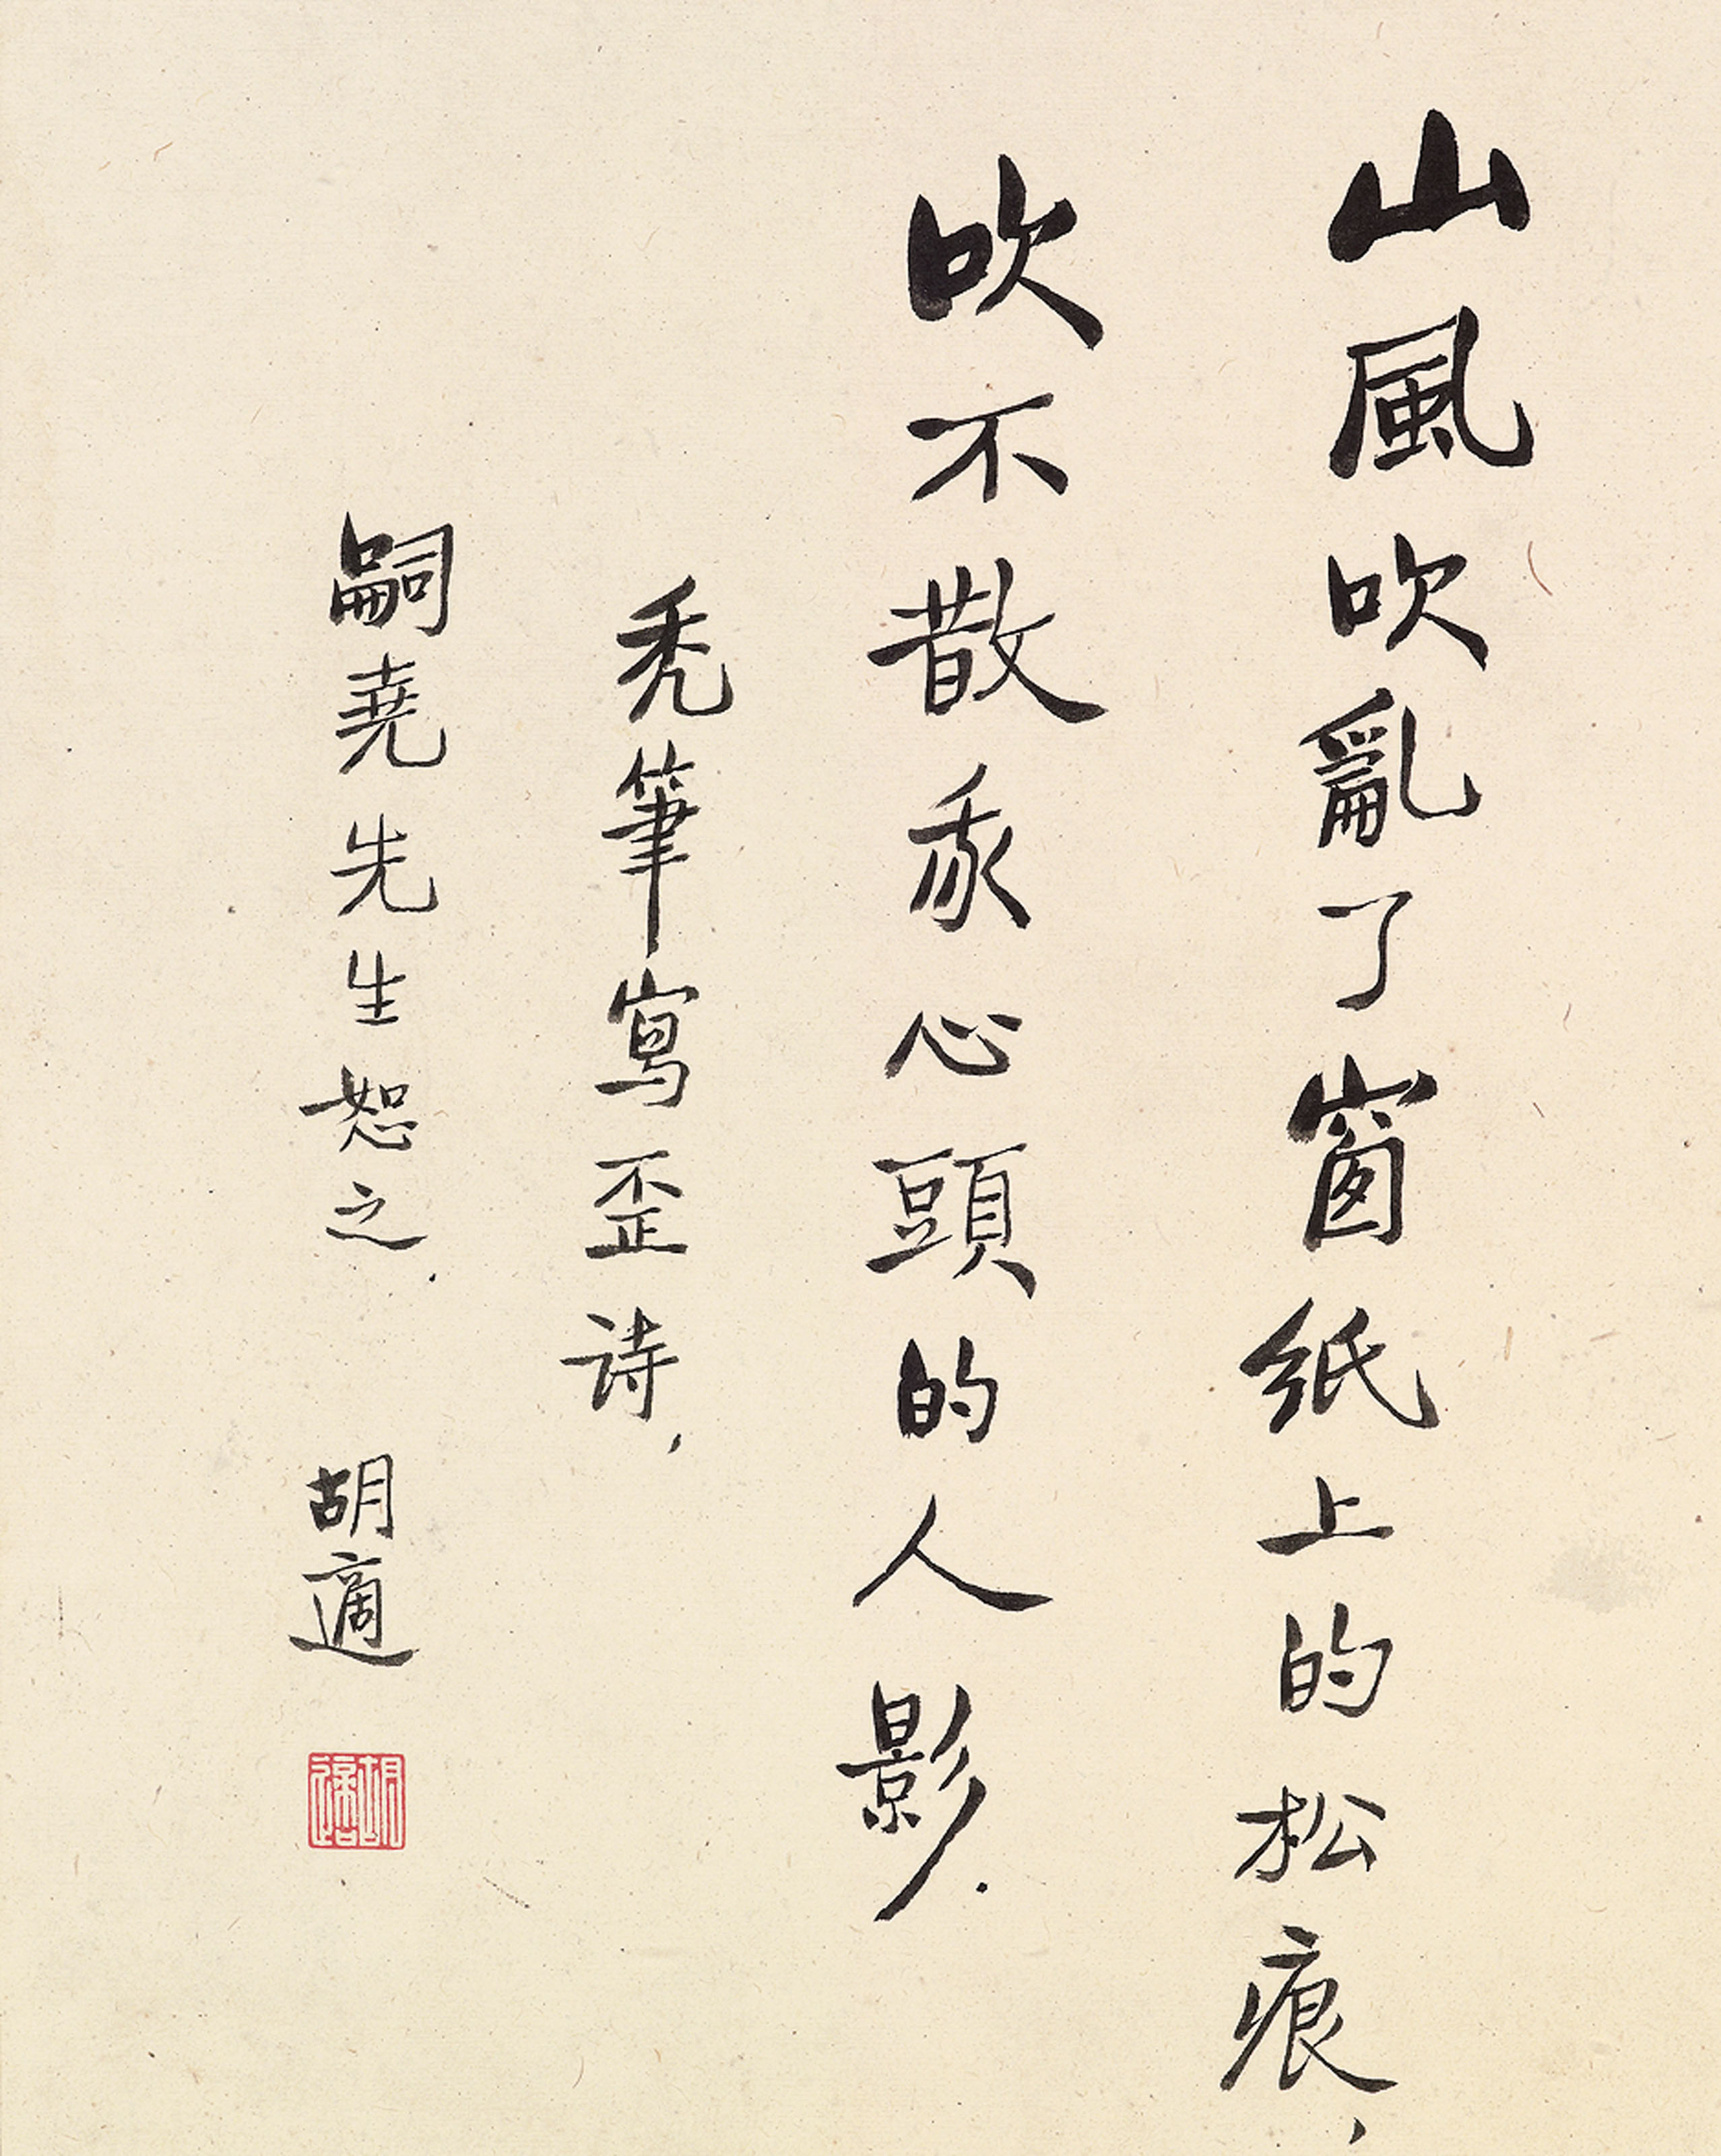 山風吹亂了窗纸上的松痕，
吹不散我心頭的人影．
秃筆寫歪诗，
嗣堯先生恕之．　胡適
胡適